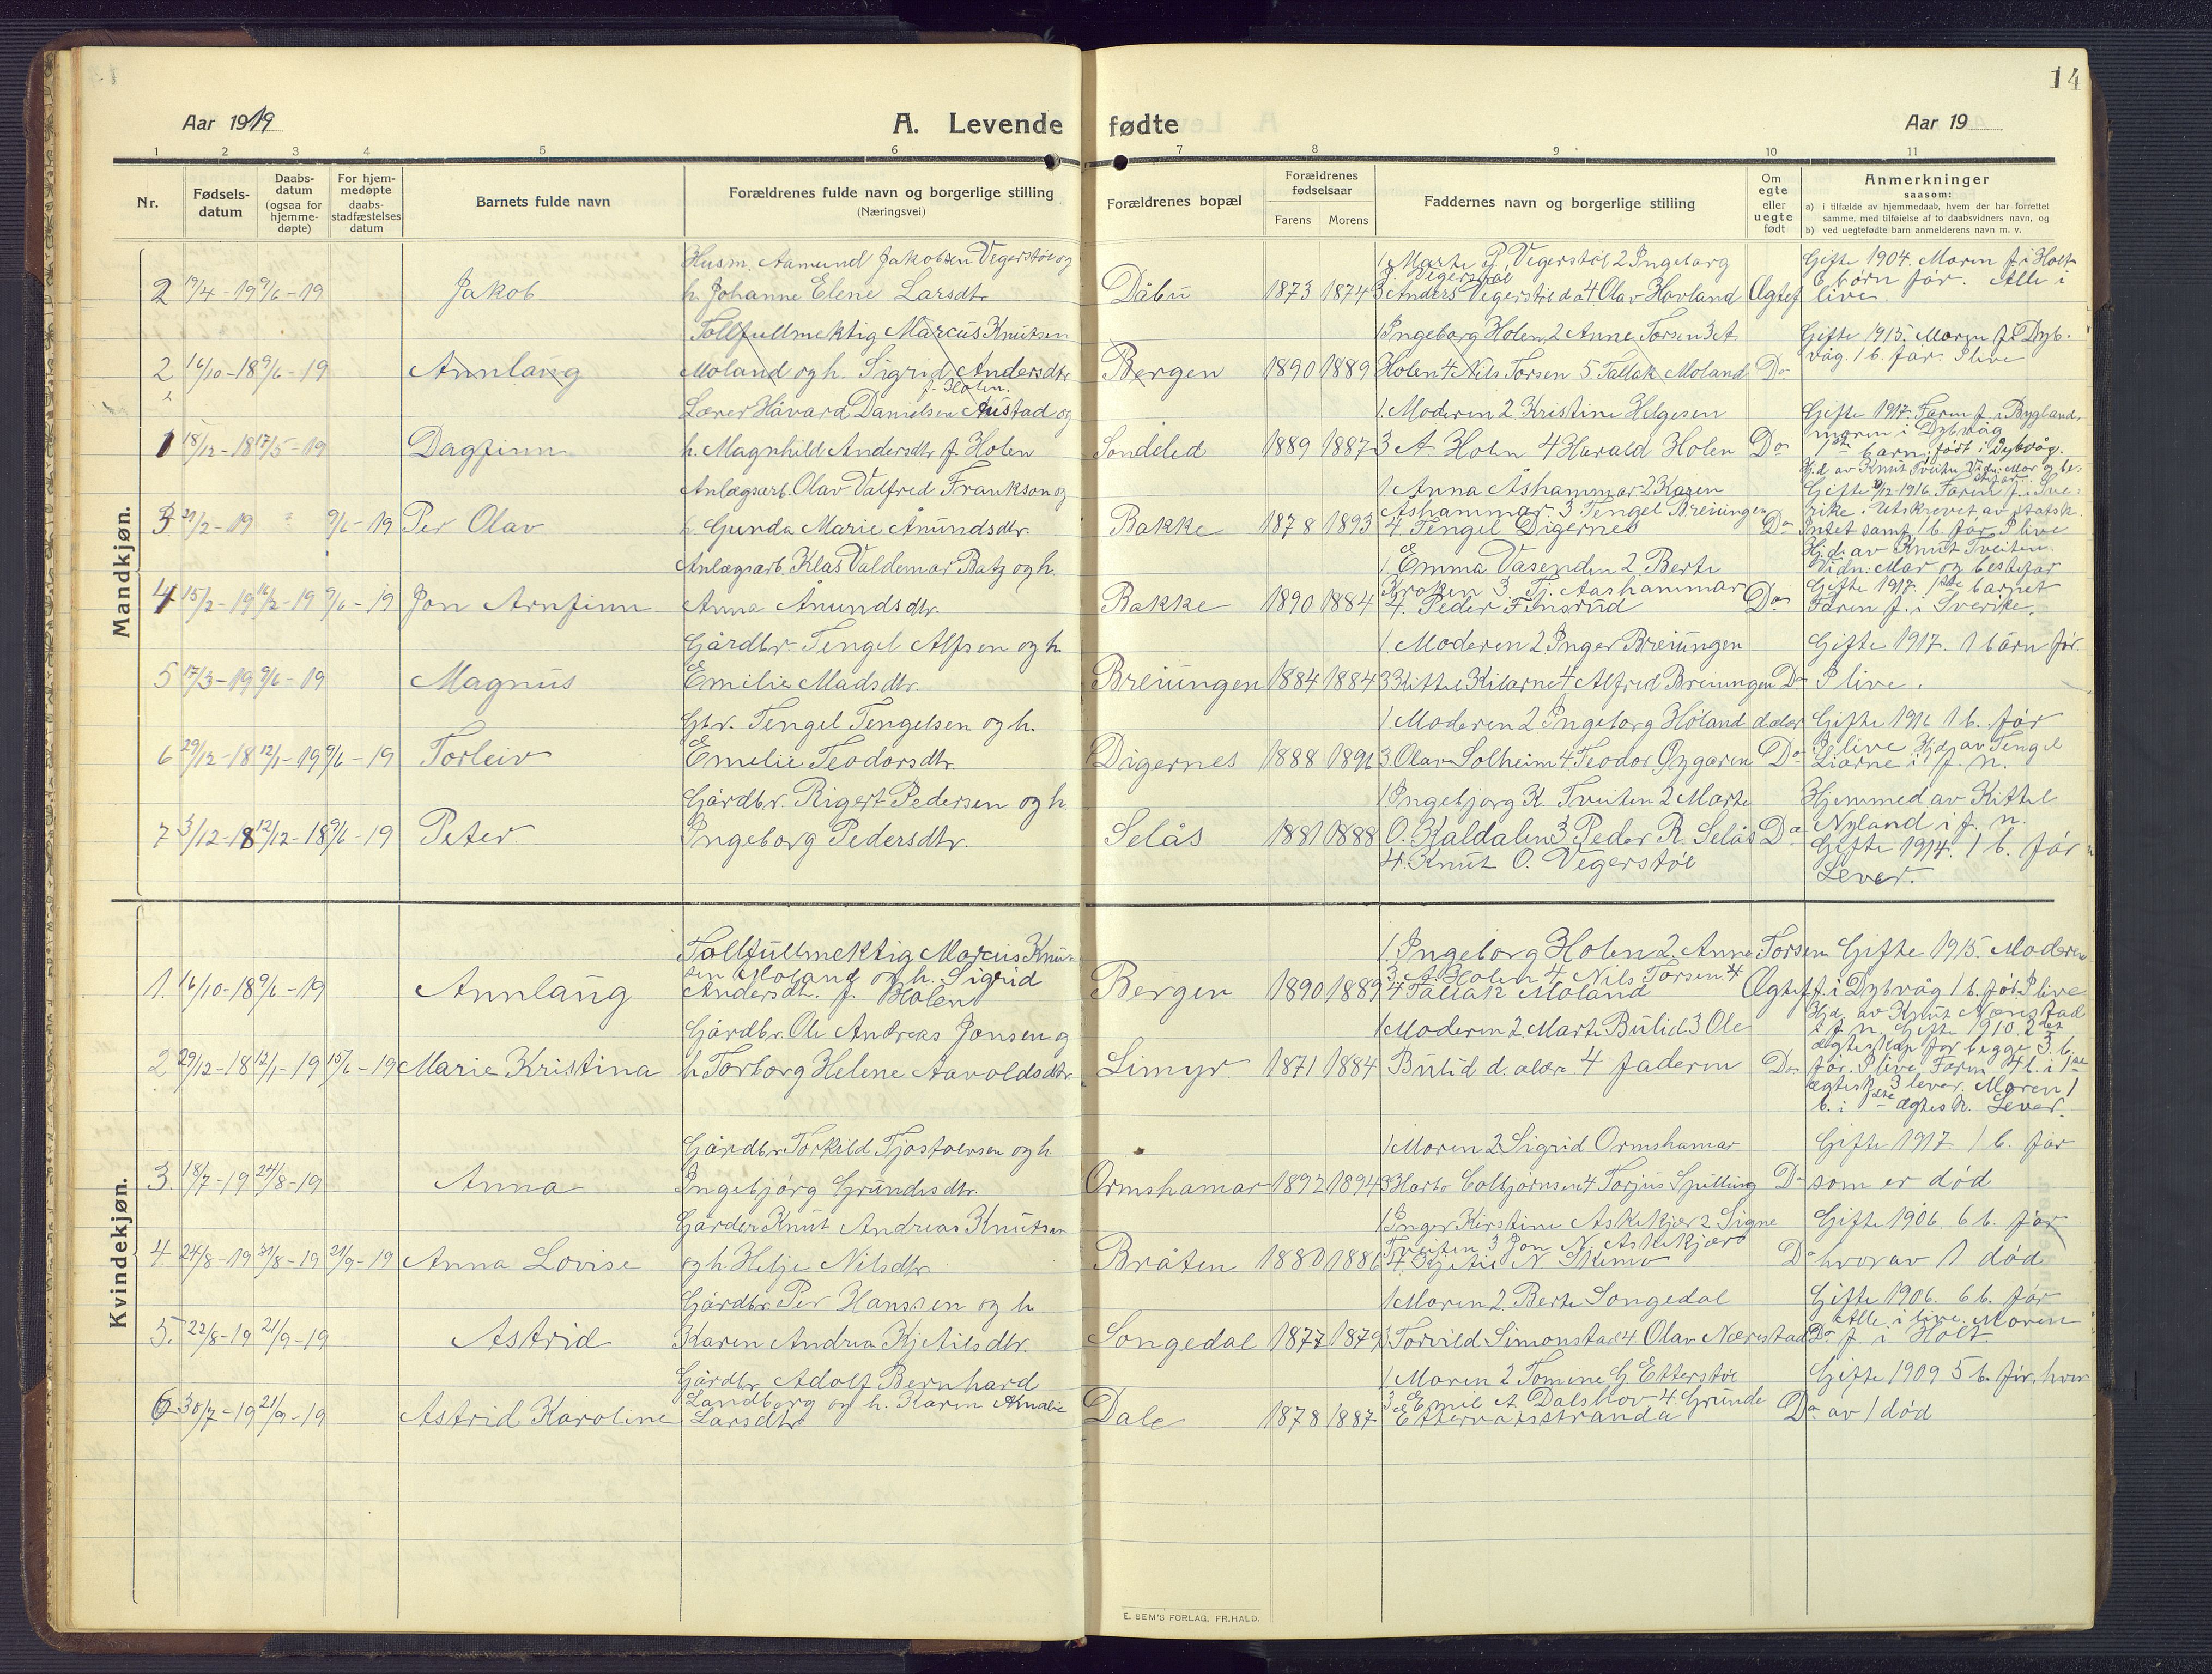 14
Aar 1919
A. Levende fødte
Aar 19
1 2 3 4 5 6 7 8 9 10 11
Nr.
Fødsels-
datum
Daabs-
datum
(ogsaa for
hjemme-
døpte)
For hjem-
medøpte
daabs-
stadfæstelses
datum
Barnets fulde navn
Forældrenes fulde navn og borgerlige stilling
(Næringsvei)
Forældrenes bopæl
Forældrenes
fødselsaar
Farens Morens
Faddernes navn og borgerlige stilling
Om
egte
eller
uegte
født
Anmerkninger
saasom:
a) i tilfælde av hjemmedaab, hvem der har forrettet
samme, med tilføielse af to daabsvidners navn, og
b) ved uegtefødte barn anmelderens navn m. v.
Mandkjøn.
2 19/4-19 9/6-19 Jakob
Husm. Aamund Jakobsen Vegerstøl og
h. Johanne Elene Larsdtr.
Dåbu 1873 1874
1 Marte J. Vegerstøl 2 Ingeborg
J. Vegerstøl
3 Anders Vegerstøl d.a 4 Olav Hovland
Ægtef
Gifte 1904. Moren f. i Holt
6 børn før. Alle i
live.
2 16/10-18 9/6-19 Annlaug
Tollfullmektig Marcus Knutsen
Moland og h. Sigrid Andersdtr
f. Holen.
Bergen 1890 1889
1 Ingeborg Holen, 2 Anne Torsen 3 A
Holen 4 Nils Torsen 5. Tallak Moland
Do
Gifte 1915. Moren f. i Dyb-
våg. 1 b. før. I live
1 18/12-18 17/5-19 Dagfinn
Lærer Håvard Danielsen Austad og
h. Magnhild Andersdtr f. Holen
Søndeled 1889 1887
1. Moderen 2. Kristine Helgesen
3 A Holen 4 Harald Holen
Do
Gifte 1917. Faren f. i Bygland,
moren i Dybvåg
1ste barn, født i Dybvåg.
3 21/2-19 9/6-19 Per Olav
Anlægsarb. Olav Valfred Frankson og
h. Gunda Marie Ånundsdtr.
Bakke 1878 1893
1. Anna Åshammar 2 Karen
Åshammar. 3 Tengel Breiungen
4. Tengel Digernes
Do
Hj.d. av Knut Tveiten Vidn: Mor og be-
Gifte 9/12 1916. Faren f. i Sve-
rike. Utskrevet av statsk.
Intet samf. 1 b. før I live
4 15/2-19 16/2-19 9/6-19 Jon Arnfinn
Anlægsarb. Klas Valdemar Batz og h.
Anna Ånundsdtr.
Bakke 1890 1884
1 Emma Vasenden 2. Berte
Kroken 3 Tj. Aashammar
4. Peder Finsrud
Do
Hj.d. av Knut Tveiten
Vidn: Mor og bestefar
Gifte 1917. 1ste barnet
Faren f. i Sverike.
5 17/3-19 9/6-19 Magnus
Gårdbr. Tengel Alfsen og h
Emilie Madsdtr.
Breiungen 1884 1884
1 Moderen 2. Inger Breiungen
3 Kittel Kilarne 4 Alfred Breiungen
Do
Gifte 1917. 1 barn før.
I live.
6 29/12-18 12/1-19 9/6-19 Torleiv
Gbr. Tengel Tengelsen og h.
Emelie Teodorsdtr.
Digernes 1888 1891
1 Moderen 2. Ingeborg Høland
3 Olav Solheim 4 Teodor Øygaren
Do
Gifte 1916 1 b. før
I live Hjd. av Tengel
Liarne i f. n.
7 3/12-18 12/12-18 9/6-19 Peter
Gårdbr. Rigert Pedersen og h
Ingeborg Pedersdtr.
Selås 1881 1888
1 Ingebjørg K. Tveiten 2 Marte
O. Kaldalen 3 Peder R. Selås
4. Knut O. Vegerstøl
Do
Hjemmed av Kittel
Nyland i f. n.
Gifte 1914. 1 b. før
Lever.
Kvindekjøn.
1. 16/10-18 9/6-19 Annlaug
Tollfullmektig Marcus Knu-
sen Moland og h. Sigrid
Andersdt. f. Holen
Bergen 1890 1889
1. Ingeborg Holen 2. Anne Torsen
3 A Holen 4. Nils Torsen
4 Tallak Moland
Ægtef
Gifte 1915. Moderen
f. i Dybvåg 1 b. før. I live
2 29/12-18 12/1-19 15/6-19 Marie Kristina
Gårdbr. Ole Andreas Jensen og
h Torborg Helene Aavoldsdtr.
Limyr 1871 1884
1 Moderen 2. Marte Bulid 3 Ole
Bulid 4 faderen
Do
Hjd. av Knut Nærestad
i f. n. Gifte 1910. 2det
ægteskap for begge 3 b.
før. I live. Faren 4 b. i 1ste
ægtesk. 3 lever. Moren 1
b. i 1ste ægtesk. Lever.
3. 18/7-19 24/8-19 Anna
Gårdbr. Torkild Tjøstolvsen og h
Ingebjørg Grundesdtr.
Ormshamar 1892 1894
1 Moren 2 Sigrid Ormshamar
3 Colbjørnsen 4 Torjus Spilling
Do
Gifte 1917 1 b. før
som er død
4 24/8-19 31/8-19 21/9-19 Anna Lovise
Gårder Knut Andreas Knutsen
og h. Helje Nilsdtr.
Bråten 1880 1886
1 Inger Kirstine Askekjær 2 Signe
Tveiten 3 Jon N. Askekjær
4. Kjetil N
Do
Gifte 1906. 6 b. før
hvorav 1 død
5. 22/8-19 21/9-19 Astrid
Gårdbr. Per Hanssen og h
Karen Andrea Kjetilsdtr.
Songedal 1877 1879
1 Moren 2. Berte Songedal
3 Torvild Simonstad 4 Olav Nærestad
Do
Gifte 1906. 6 b. før
Alle i live. Moren
f. i Holt.
6 30/7-19 21/9-19 Astrid Karoline
Gårdbr Adolf Bernhard
Landberg og h. Karen Amalie
Larsdtr
Dale 1878 1887
1 Moren 2 Tomine G Etterstøl
3 Emil A Dalskov 4. Grunde
Do
Gifte 1909 5 b. før, hvor
av 1 død
E. SEM'S FORLAG, FR.HALD.